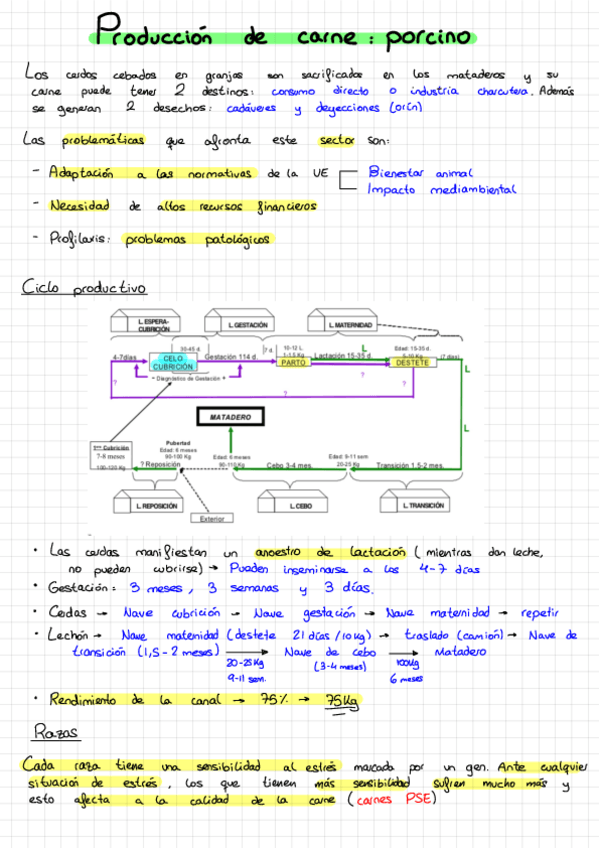 Producción de carne: porcino
Los cerdos cebados en granjas son sacrificados en los mataderos y su
carne puede tener 2 destinos: consumo directo o industria charcutera. Además
se generan 2 desechos: cadáveres y deyecciones (orín)
Las problemáticas que afronta este sector son:
- Adaptación a las normativas de la UE
Bienestar animal
Impacto mediambiental
- Necesidad de altos recursos financieros
- Profilaxis: problemas patológicos
Ciclo productivo
L. ESPERA-
CUBRICIÓN
L. GESTACIÓN
L. MATERNIDAD
30-45 d.
7 d.
10-12 L.
1-1.5 Kg
L
Edad: 15-35 d.
5-10 Kg
(7 días)
4-7días
CELO
CUBRICIÓN
Gestación 114 d.
PARTO
Lactación 15-35 d.
DESTETE
L
- Diagnóstico de Gestación +
?
?
?
MATADERO
L
1era Cubrición
7-8 meses
100-120 Kg
Pubertad
Edad: 6 meses
90-100 Kg
? Reposición
Edad: 6 meses
90-110 Kg
Cebo 3-4 mes.
Edad: 9-11 sem
20-25 Kg
Transición 1.5-2 mes.
L. REPOSICIÓN
Exterior
L. CEBO
L. TRANSICIÓN
• Las cerdas manifiestan un anoestro de lactación (mientras dan leche,
no pueden cubrirse) → Pueden inseminarse a los 4-7 días
• Gestación: 3 meses, 3 semanas y 3 días.
• Cerdas → Nave cubrición → Nave gestación → Nave maternidad → repetir
• Lechón → Nave maternidad (destete 21 días / 10kg) → traslado (camión) → Nave de
transición (1,5 - 2 meses) → Nave de cebo → Matadero
20-25kg
9-11 sem.
(3-4 meses)
100kg
6 meses
• Rendimiento de la canal → 75% → 75kg
Razas
Cada raza tiene una sensibilidad al estrés marcada por un gen. Ante cualquier
situación de estrés, los que tienen más sensibilidad sufren mucho más y
esto afecta a la calidad de la carne (carnes PSE)